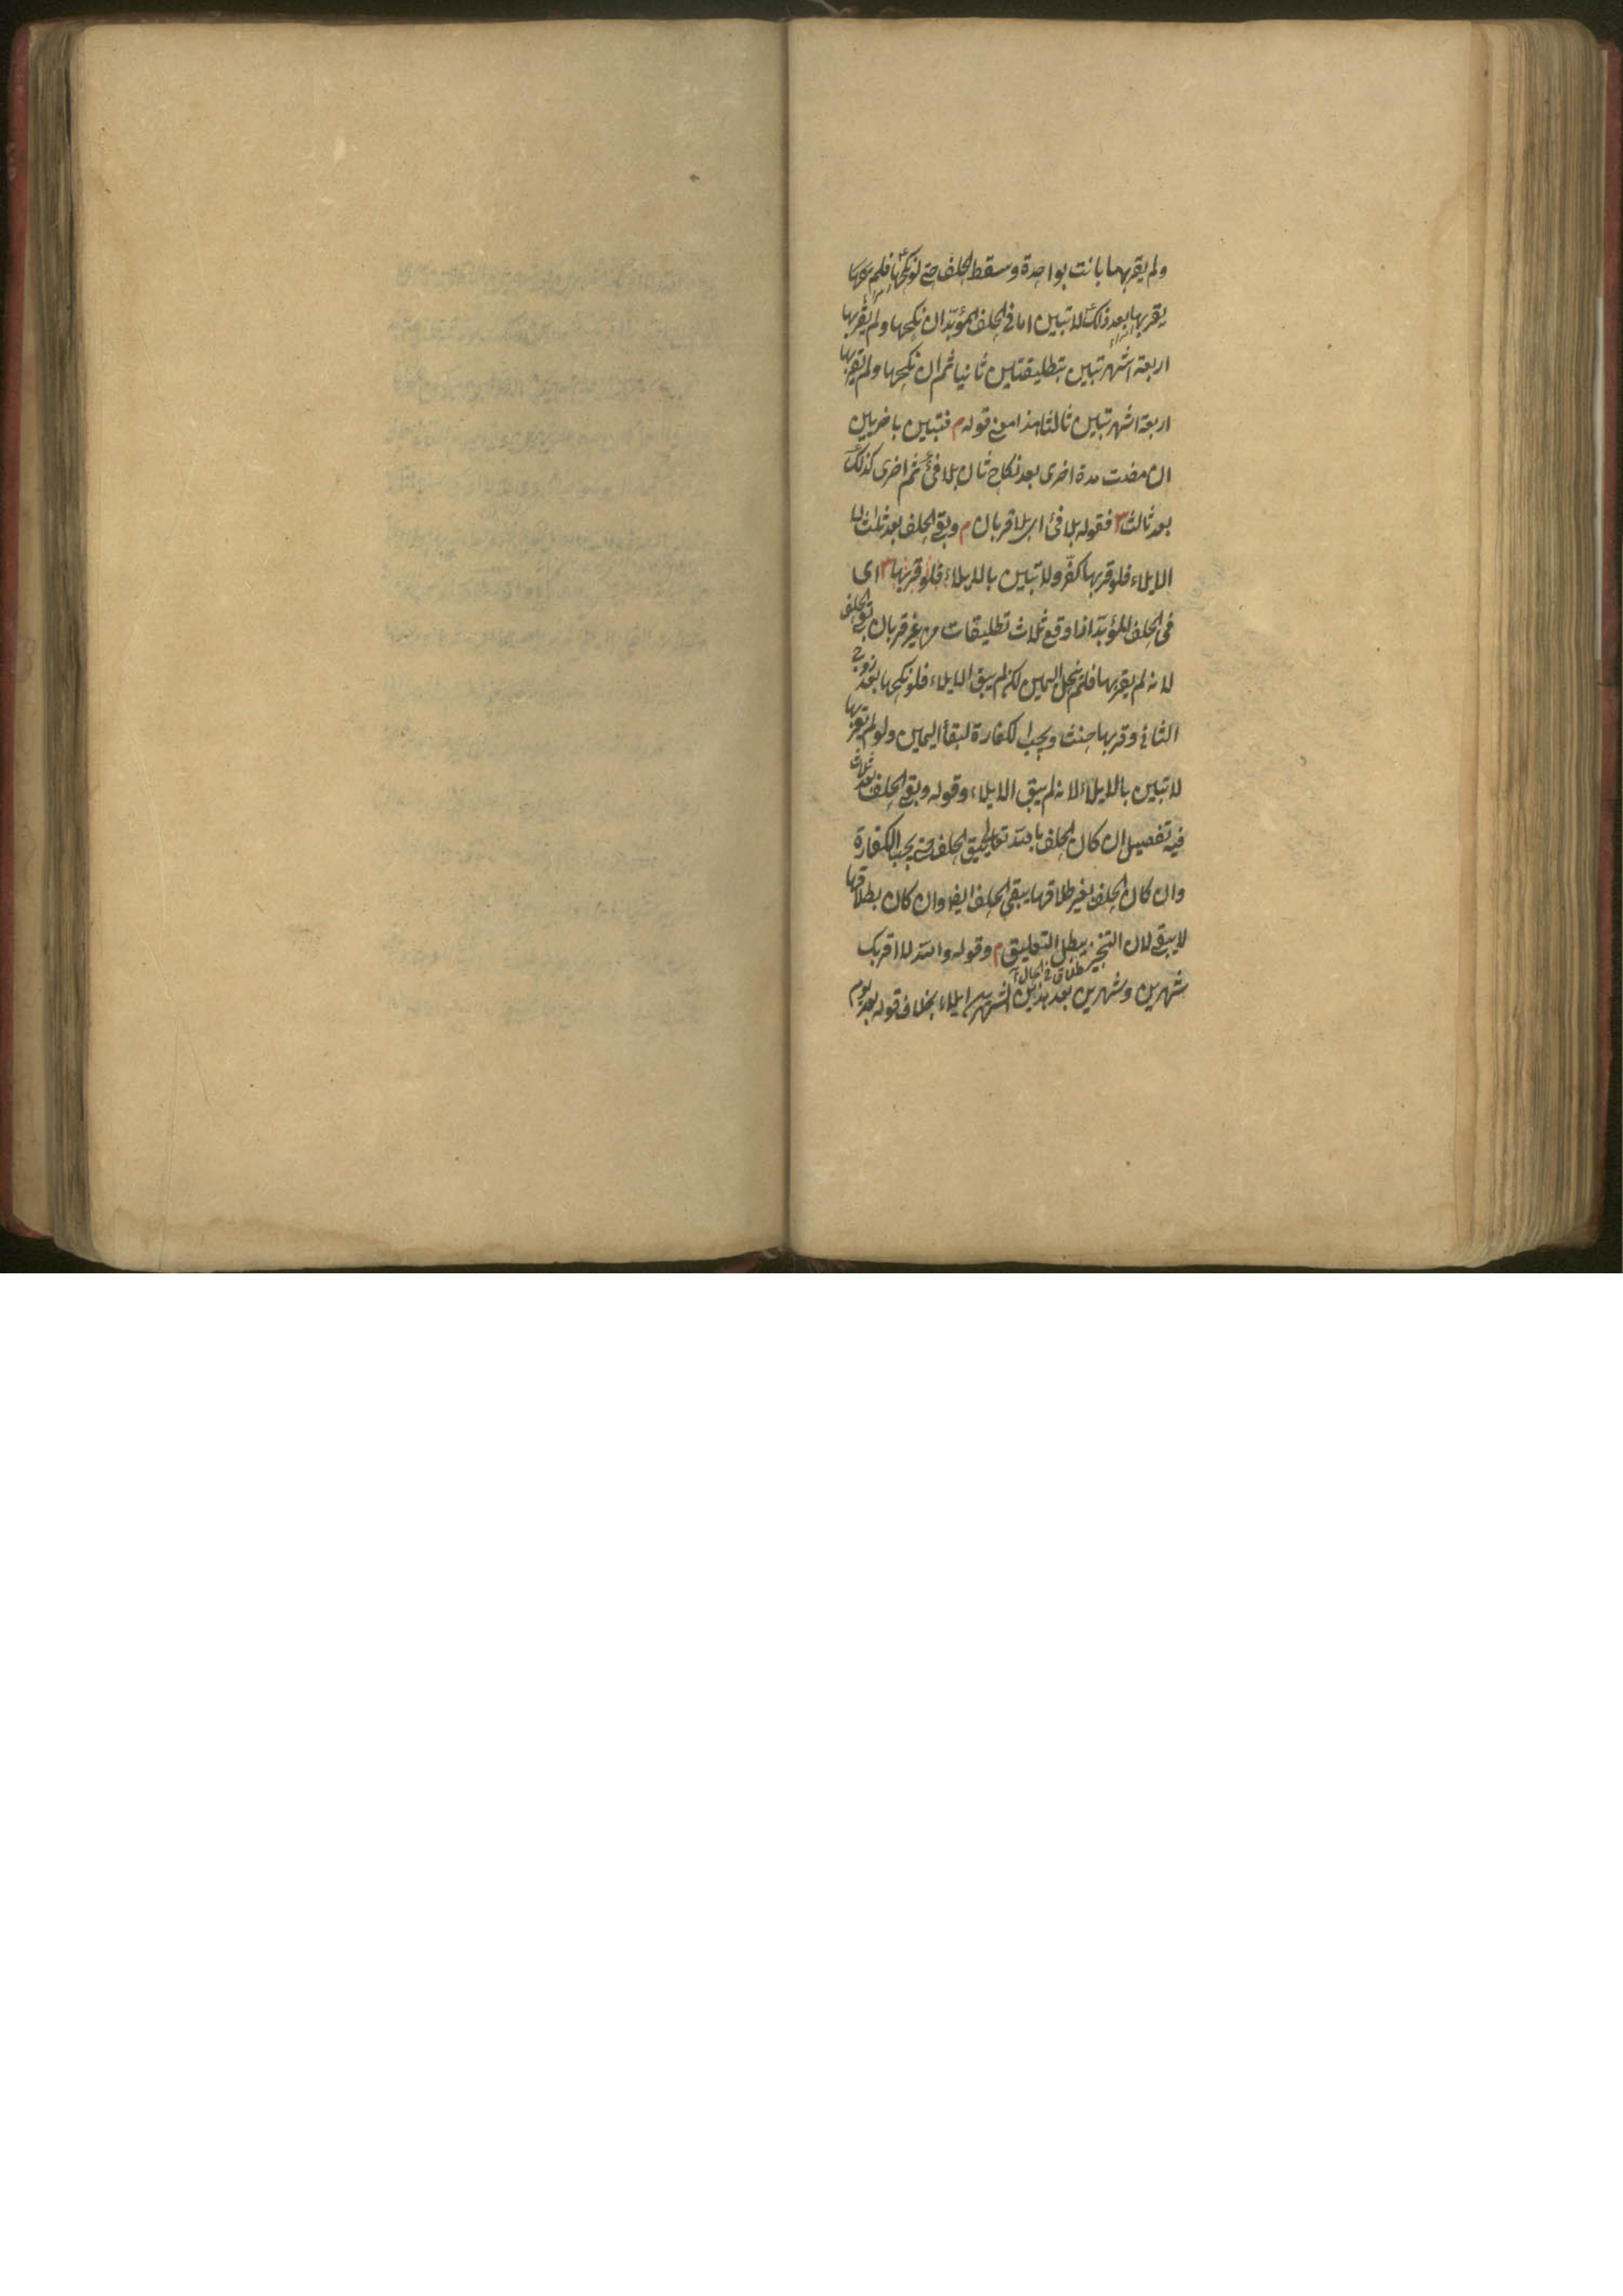 ولم يقربها بانت بواحدة وسقط الحلف حتى لو نكحها فلم
يقربها بعد ذلك لا تبين اما في الحلف المؤبد ان نكحها ولم يقربها
اربعة اشهر تبين بتطليقتين ثانيا ثم ان نكحها ولم يقربها
اربعة اشهر تبين ثالثا هذا معنى قوله م فتبين باخريين
ان مضت مدة اخرى بعد نكاح ثان بلا فئ ثم اخرى كذلك
بعد ثالث فقوله بلا فئ اى بلا قربان م وبقى الحلف بعد ثلث لا
الايلاء فلو قربها كفر ولا تبين بالايلاء فلو قربها اى
فى الحلف المؤبد اذا وقع ثلاث تطليقات من غير قربان بقى الحلف
لانه لم يقربها فلم ينحل اليمين لكن لم يبق الايلاء فلو نكحها بعد زوج
الثانى وقربها حنث ويجب الكفارة لبقاء اليمين ولو لم يقربها
لا تبين بالايلاء لانه لم يبق الايلاء وقوله وبقى الحلف بعد ثلاث
فيه تفصيل ان كان الحلف بالله تعالى الحلف حتى يجب الكفارة
وان كان الحلف بغير طلاقها يبقى الحلف ايضا وان كان بطلاقها
لا يبقى لان التنجيز يبطل التعليق م وقوله والله لا اقربك
طلاق فى الحال
شهرين وشهرين بعد هذين الشهرين ايلاء بخلاف قوله بعد يوم